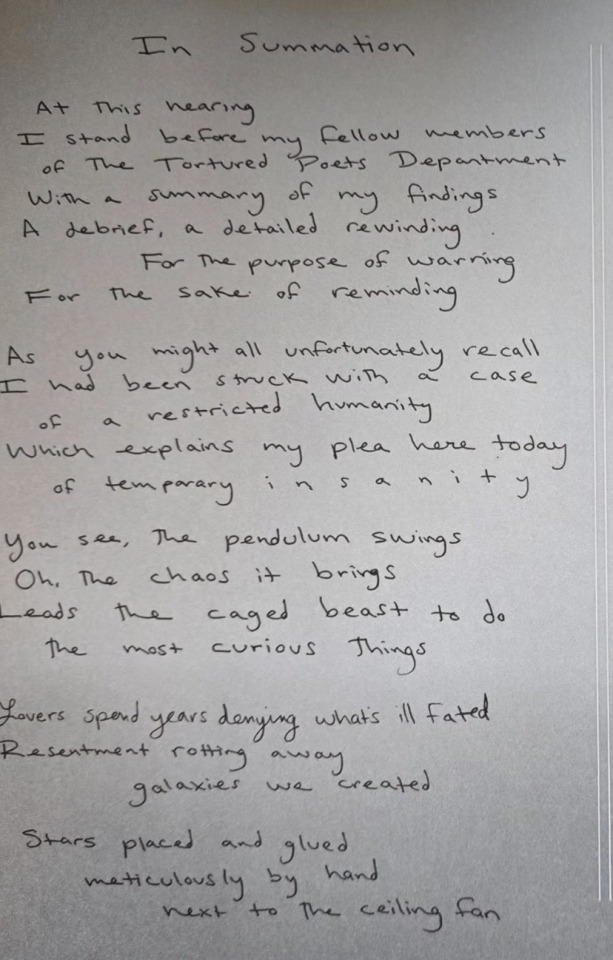 In Summation
At this hearing
I stand before my fellow members
of The Tortured Poets Department
With a summary of my findings
A debrief, a detailed rewinding
For the purpose of warning
For the sake of reminding
As you might all unfortunately recall
I had been struck with a case
of a restricted humanity
Which explains my plea here today
of temporary i n s a n i t y
You see, the pendulum swings
Oh, the chaos it brings
Leads the caged beast to do
the most curious things
Lovers spend years denying what's ill fated
Resentment rotting away
galaxies we created
Stars placed and glued
meticulously by hand
next to the ceiling fan